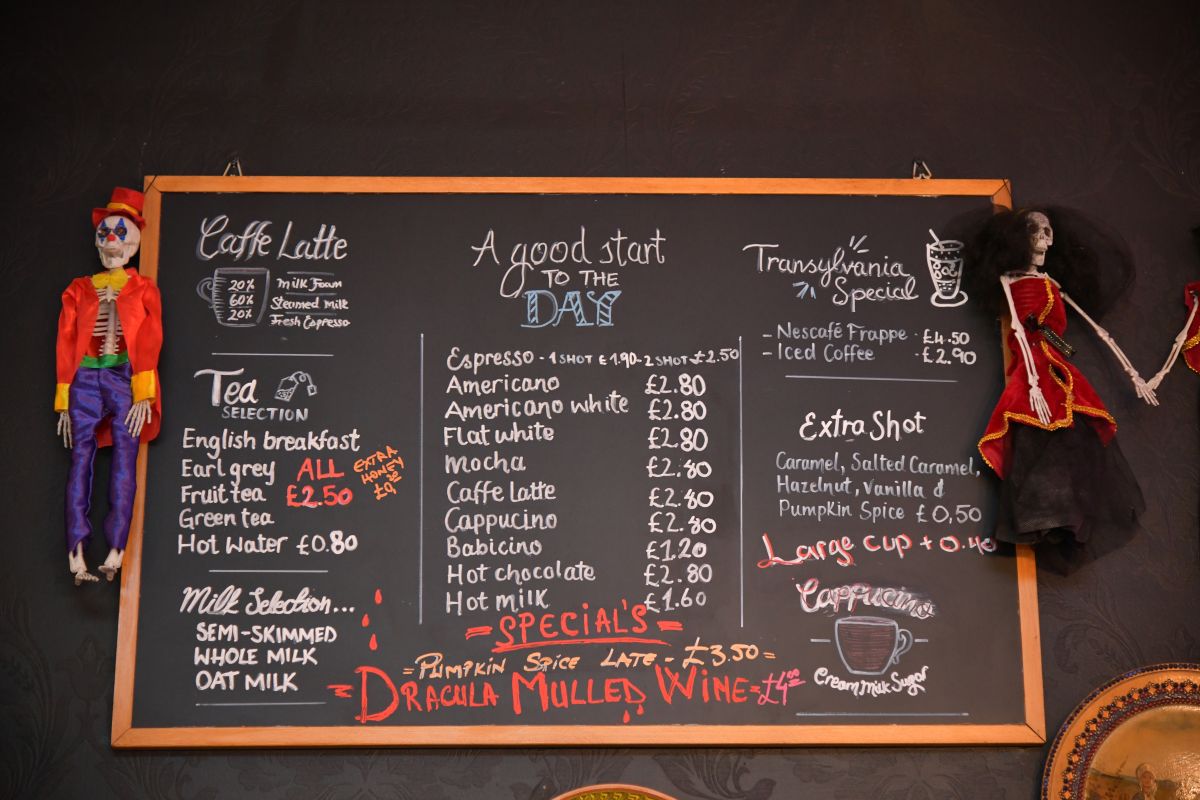 Caffe Latte
20% Milk Foam
60% Steamed Milk
20% Fresh Espresso
Tea
SELECTION
English breakfast
Earl grey
Fruit tea
Green tea
ALL
£2.50
EXTRA
HONEY
Hot Water £0.80
Milk Selection...
SEMI-SKIMMED
WHOLE MILK
OAT MILK
A good start
TO THE
DAY
Espresso - 1 SHOT £1.90 - 2 SHOT £2.50
Americano £2.80
Americano white £2.80
Flat white £2.80
Mocha £2.80
Caffe Latte £2.80
Cappucino £2.80
Babicino £1.20
Hot chocolate £2.80
Hot milk £1.60
=SPECIAL'S=
=PUMPKIN SPICE LATE - £3.50=
=DRACULA MULLED WINE= £4.00
Transylvania
Special
- Nescafé Frappe - £4.50
- Iced Coffee - £2.90
Extra Shot
Caramel, Salted Caramel,
Hazelnut, Vanilla &
Pumpkin Spice £0,50
Large cup + 0.40
Cappucino
Cream Milk Sugar